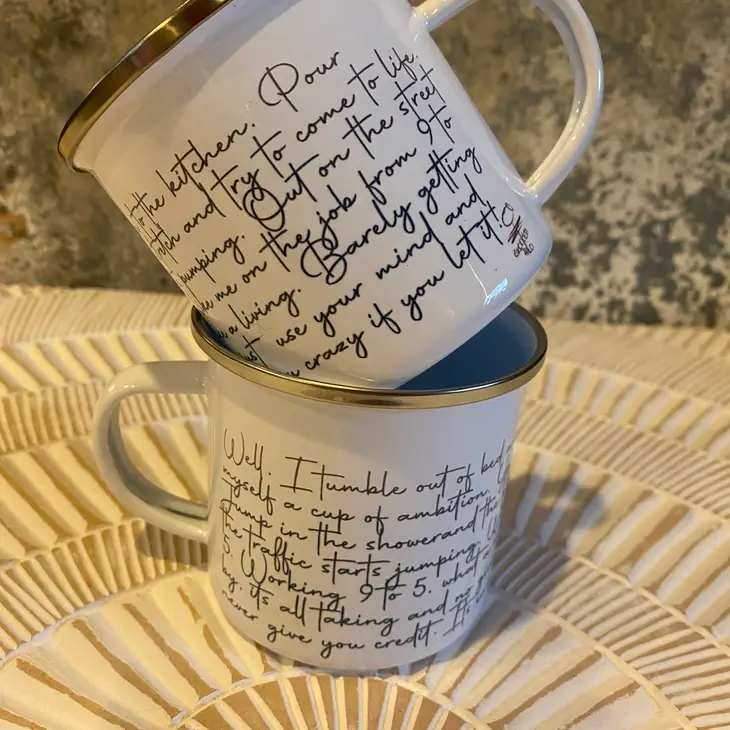 the kitchen. Pour
and try to come to life.
jumping. Out on the street
me on the job from 9 to
a living. Barely getting
use your mind and
crazy if you let it!
Well. I tumble out of bed
myself a cup of ambition.
Jump in the showerand the
the traffic starts jumping.
5. Working 9 to 5. what a
by. it's all taking and no
never give you credit. It's